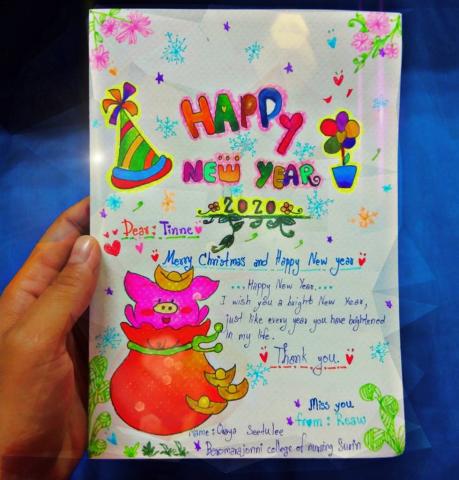 HAPPY
NEW YEAR
2020
Dear : Tinne
Merry Christmas and Happy New year
...Happy New Year....
I wish you a bright New Year,
just like every year you have brightened
in my life.
Thank you.
Miss you
from : Reaw
Name : Oraya Seedulee
college of nursing Surin